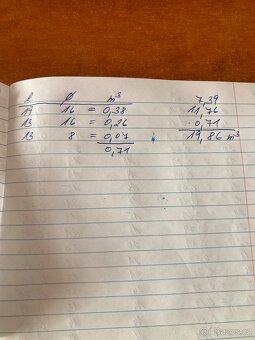 l ø m³ 7,39
19 16 = 0,38 11,76
13 16 = 0,26 0,71
13 8 = 0,07 19,86 m³
0,71